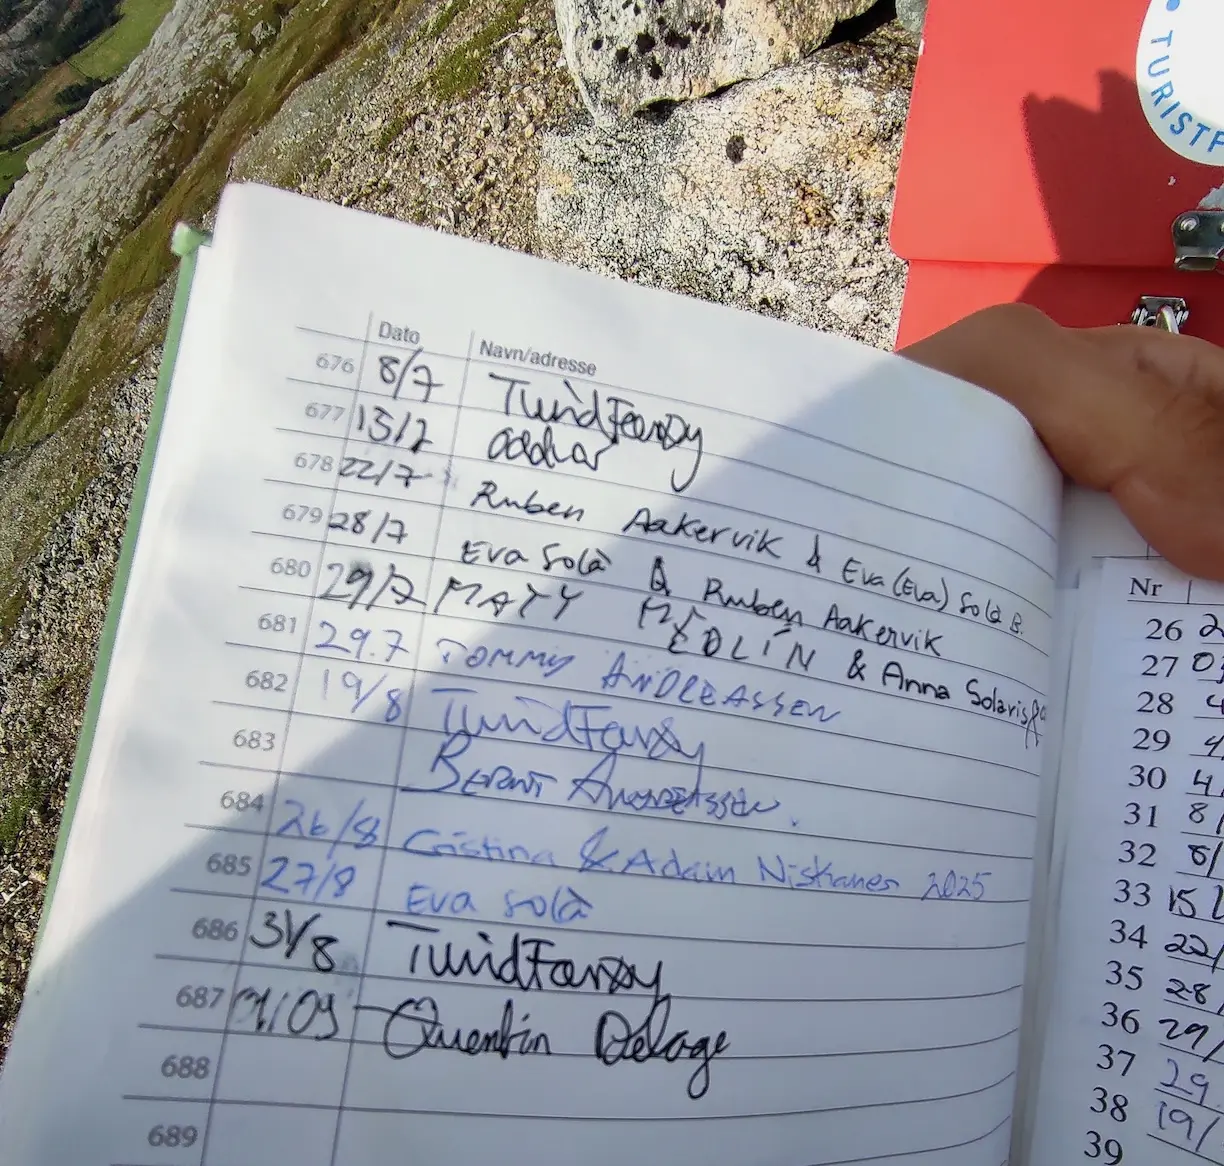 TURISTF
Dato Navn/adresse
676 8/7
677 15/7 Oddvar
678 22/7 Ruben Aakervik & Eva (Eva) Solà B.
679 28/7 Eva Solà & Ruben Aakervik
680 29/7 MATY MEDLÍN & Anna Solaris
681 29.7 TOMMY ANDREASSEN
682 19/8
683 BERNT ANDREASSEN.
684 26/8 Cristina & Adam Niskanen 2025
685 27/8 Eva Solà
686 31/8
687 01/09 - Quentin Delage
688
689
Nr
26 2
27 0
28 4
29 4
30 4
31 8/
32 8/
33 15
34 22/
35 28/
36 29/
37 29
38 19/
39